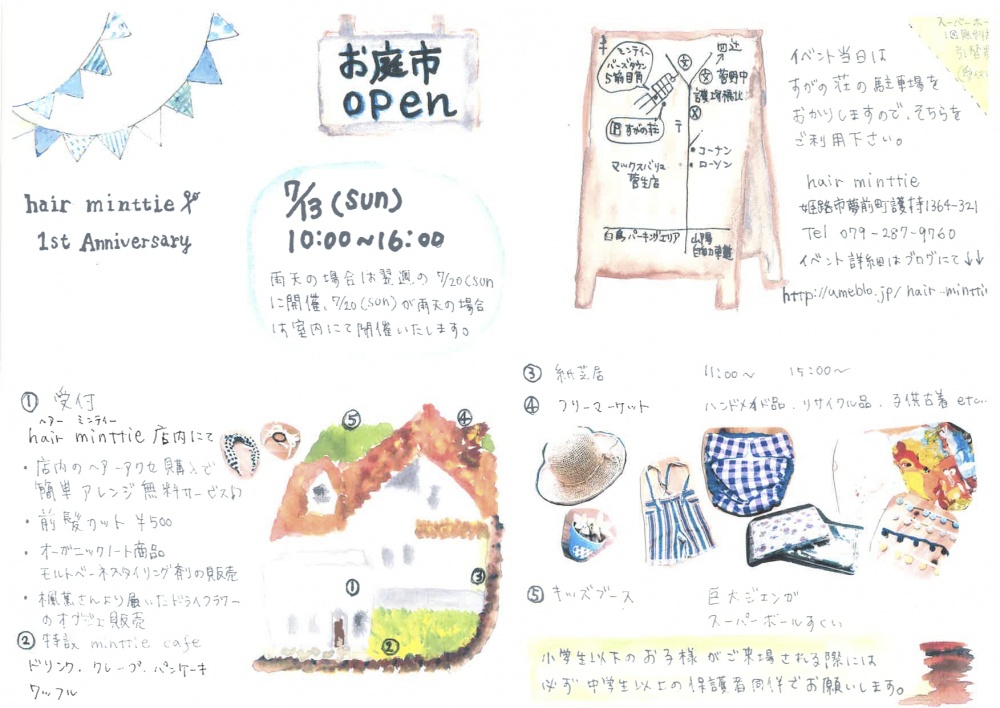 お庭市
open
hair minttie
1st Anniversary
7/13(sun)
10:00~16:00
雨天の場合は翌週の7/20(sun
に開催、7/20(sun)が雨天の場合
は室内にて開催いたします。
ミンティー
バーズタウン
5軒目角
四辻
菅野中
護持橋北
P すがの荘
〒
コーナン
ローソン
マックスバリュ
菅生店
白鳥パーキングエリア
山陽
自動車道
スーパーボー
1回無料
引替券
イベント当日は
すがの荘の駐車場を
おかりしますので、そちらを
ご利用下さい。
hair minttie
姫路市夢前町護持1364-321
Tel 079-287-9760
イベント詳細はブログにて↓↓
http://ameblo.jp/hair-minttie
① 受付
ヘアー ミンティー
hair minttie 店内にて
・店内のヘアーアクセ購入で
簡単アレンジ無料サービス♪
・前髪カット ¥500
・オーガニックノート商品
モルトベーネスタイリング剤の販売
・楓蕉さんより届いたドライフラワー
のオブジェ販売
② 特設 minttie cafe
ドリンク、クレープ、パンケーキ
ワッフル
⑤
④
③
①
②
③ 紙芝居 11:00~ 15:00~
④ フリーマーケット ハンドメイド品、リサイクル品、子供古着 etc...
⑤ キッズブース 巨大ジェンガ
スーパーボールすくい
小学生以下のお子様がご来場される際には
必ず中学生以上の保護者同伴でお願いします。